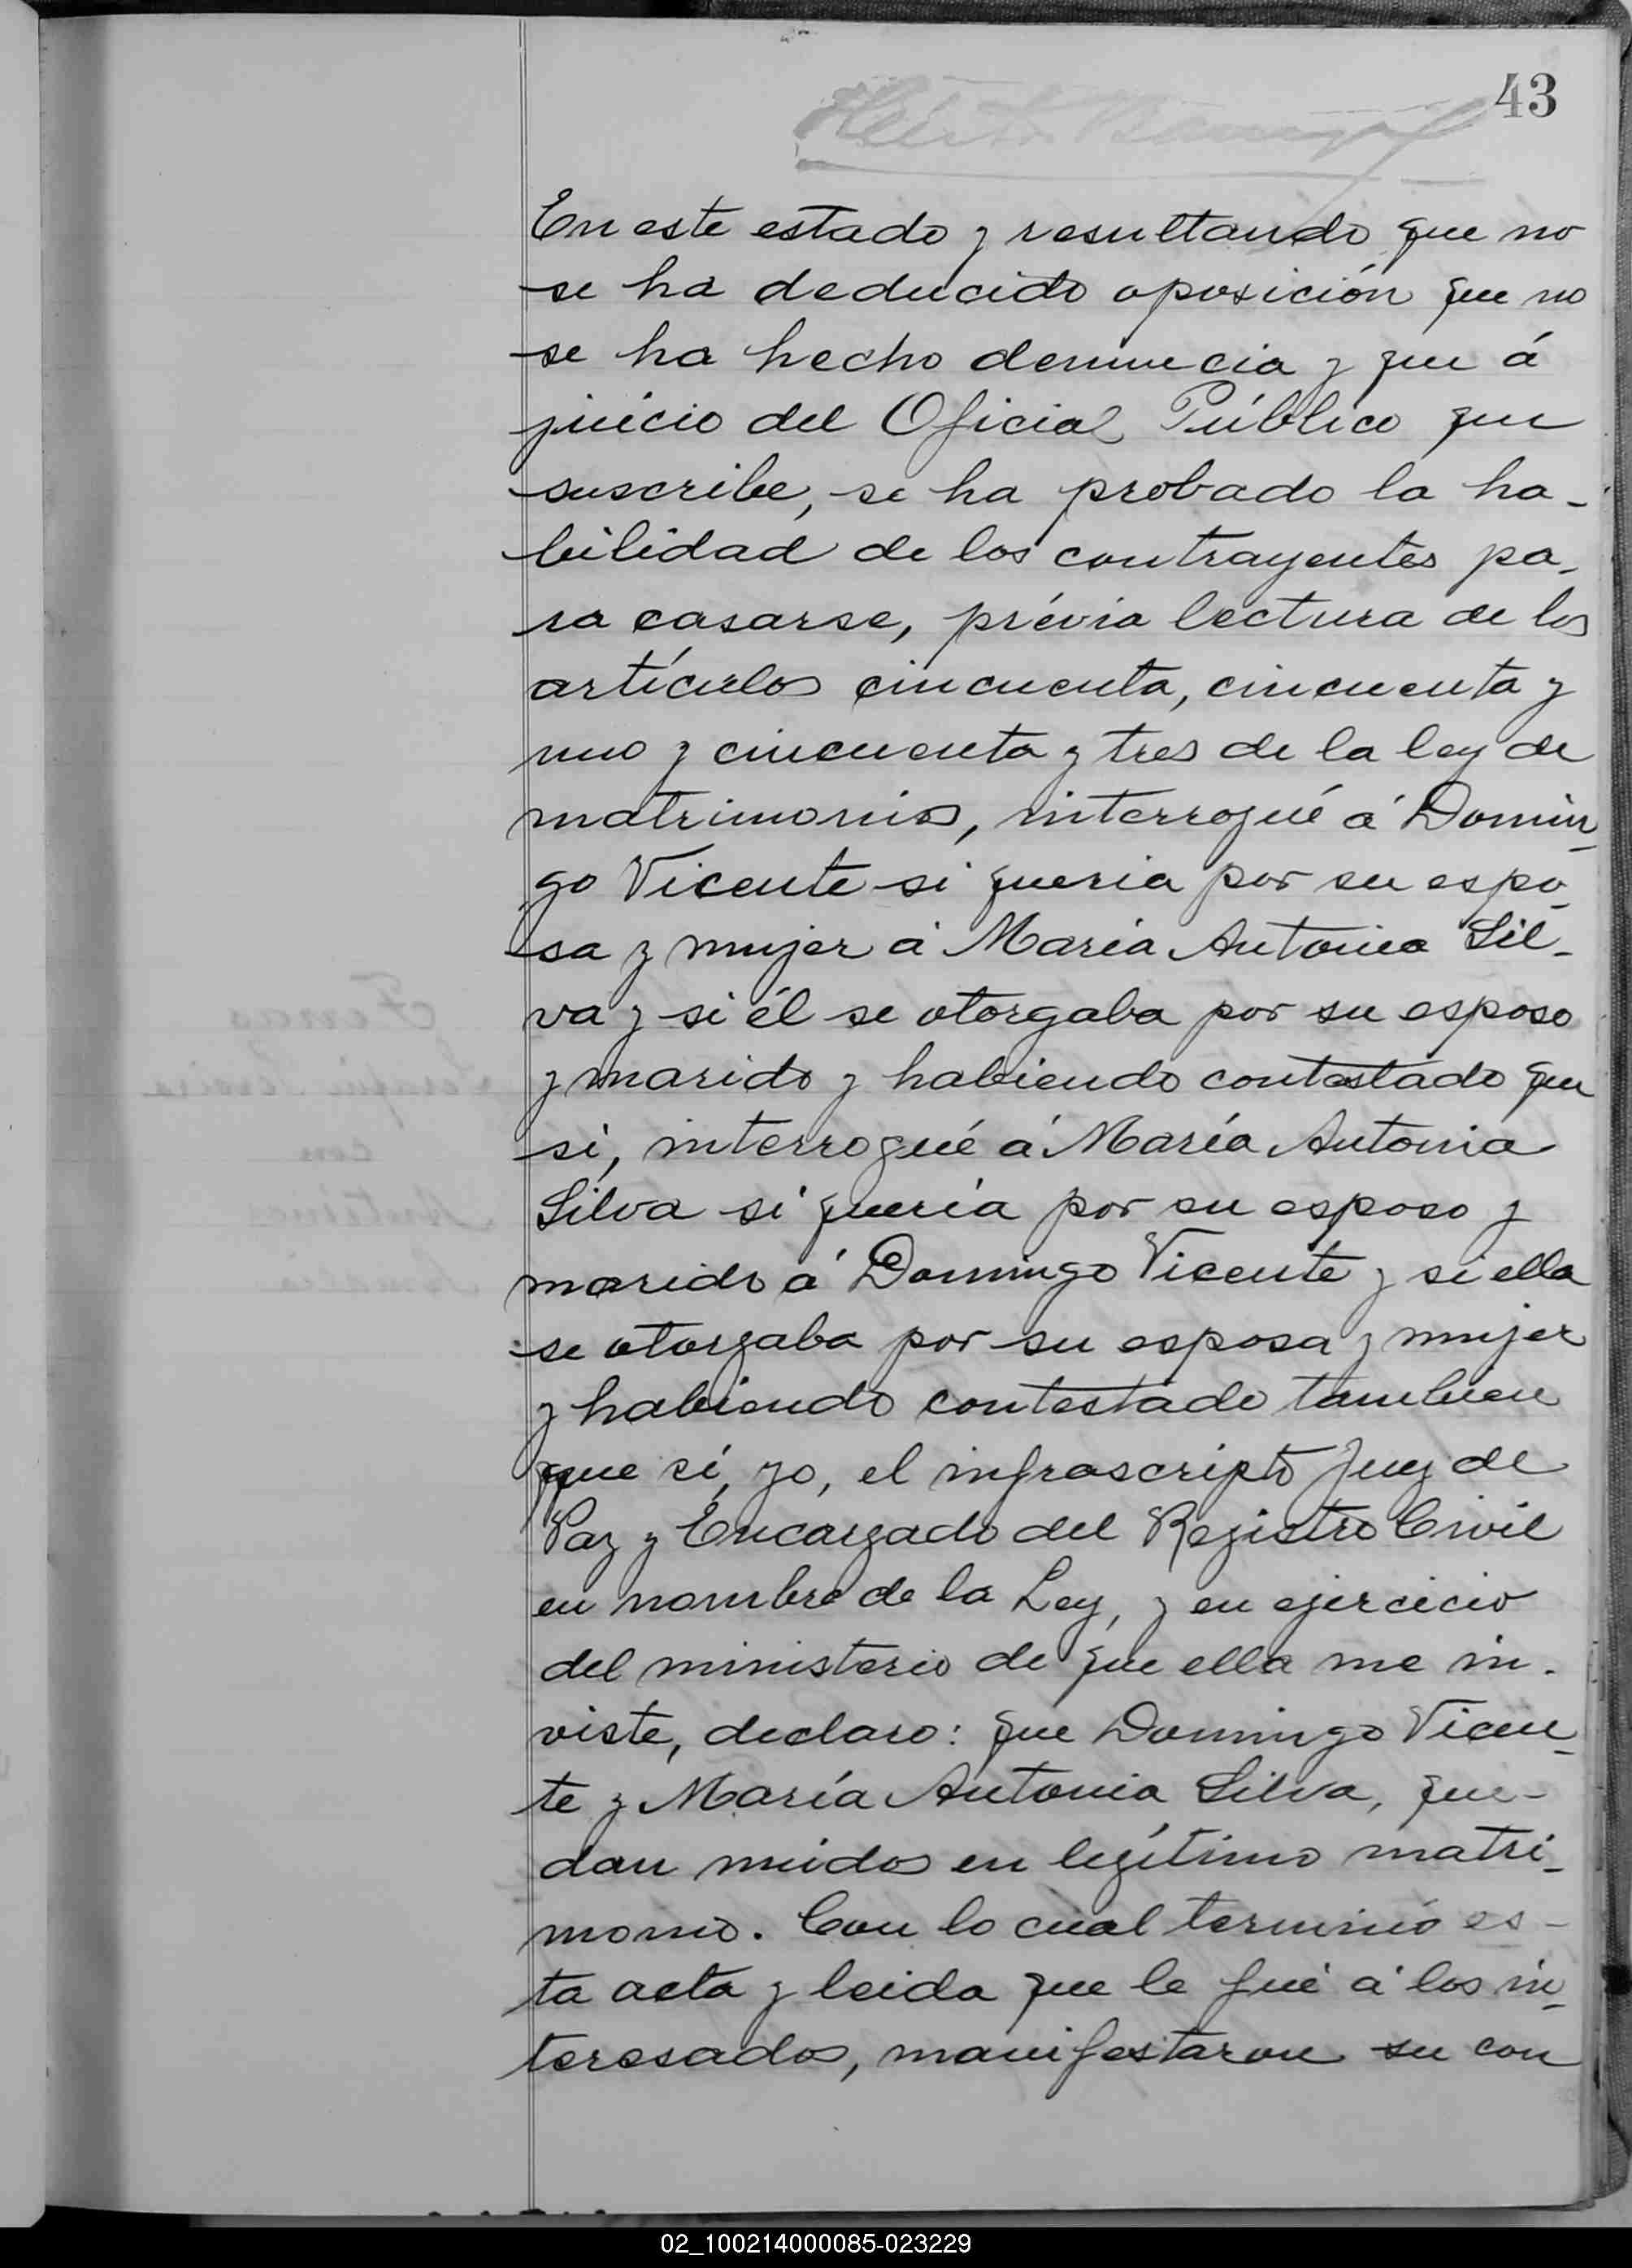 43
En este estado y resultando que no
se ha deducido oposición que no
se ha hecho denuncia y que á
juicio del Oficial Público que
suscribe, se ha probado la ha-
bilidad de los contrayentes pa-
ra casarse, prévia lectura de los
artículos cincuenta, cincuenta y
uno y cincuenta y tres de la ley de
matrimonios, interrogué á Domin-
go Vicente si queria por su espo-
sa y mujer á María Antonia Sil-
va y si él se otorgaba por su esposo
y marido y habiendo contestado que
si, interrogué á María Antonia
Silva si quería por su esposo y
marido á Domingo Vicente y si ella
se otorgaba por su esposa y mujer
y habiendo contestado tambien
que sí, yo, el infrascripto Juez de
Paz y Encargado del Registro Civil
en nombre de la Ley, y en ejercicio
del ministerio de que ella me in-
viste, declaro: que Domingo Vicen-
te y María Antonia Silva, que-
dan unidos en legítimo matri-
monio. Con lo cual terminó es-
ta acta y leida que le fué á los in-
teresados, manifestaron su con
02_100214000085-023229